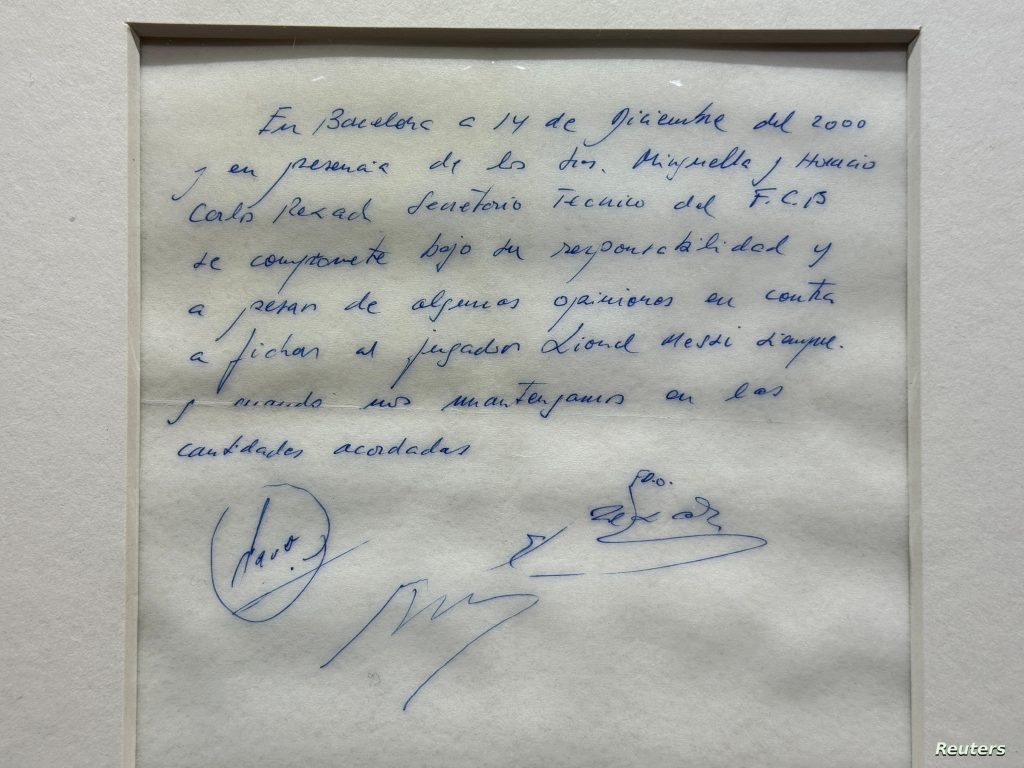 En Barcelona a 14 de Diciembre del 2000
y en presencia de los Sres. Minguella y Horacio
Carlos Rexach Secretario Tecnico del F.C.B
se compromete bajo su responsabilidad y
a pesar de algunas opiniones en contra
a fichar al jugador Lionel Messi siempre.
y cuando nos mantengamos en las
cantidades acordadas
Fdo.
Reuters